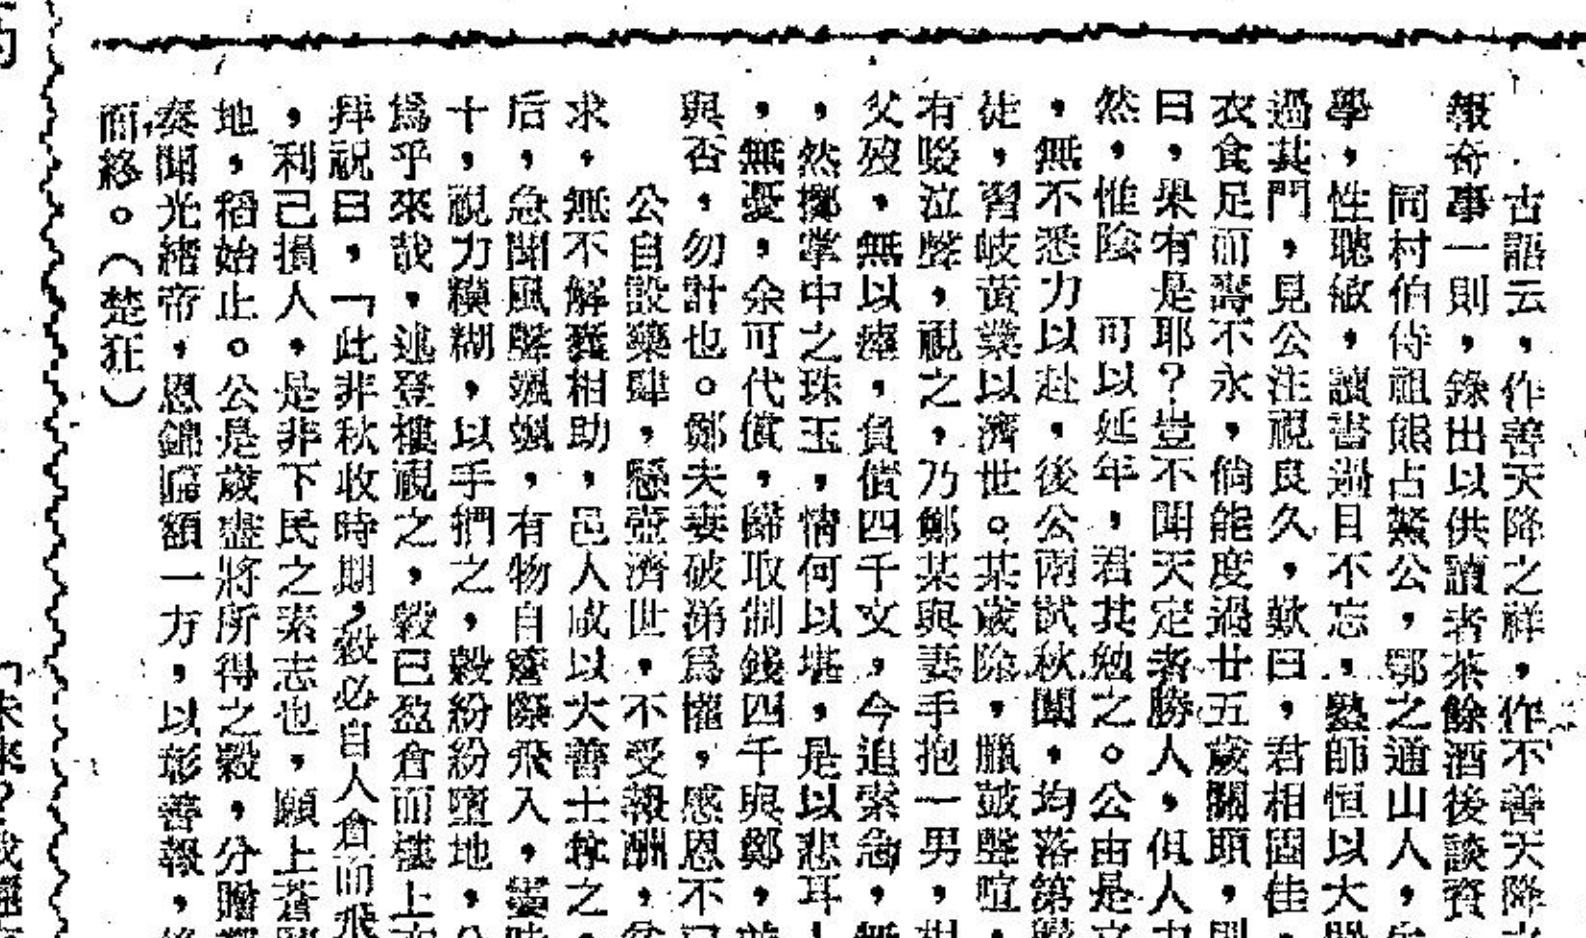 古語云，作善天降之祥，作不善天降
報奇事一則，錄出以供讀者茶餘酒後談資，
同村伯侍祖熊占鰲公，鄂之通山人，
學，性聰敏，讀書過目不忘，塾師恒以大
過其門，見公注視良久，歎曰，君相固佳
衣食足而壽不永，倘能度過廿五歲關頭，則
曰，果有是耶？豈不聞天定者勝人，但人
然，惟陰　可以延年，君其勉之。公由是
，無不悉力以赴，後公兩試秋闈，均落第
徒，習岐黃業以濟世。某歲除，臘鼓聲喧，
有啜泣聲，視之，乃鄭某與妻手抱一男，相
父歿，無以瘞，負債四千文，今追索急，無
，然擲掌中之珠玉，情何以堪，是以悲耳
，無憂，余可代償，歸取制錢四千與鄭，
與否，勿計也。鄭夫妻破涕爲懽，感恩不已
公自設藥肆，懸壺濟世，不受報酬，
求，無不解囊相助，邑人咸以大善士尊之，
后，急聞風聲颯颯，有物自簷際飛入，
十，視力糢糊，以手捫之，穀紛紛墮地，公
爲乎來哉，遂登樓視之，穀已盈倉而樓上
拜祝曰，「此非秋收時期，穀必自人倉而飛
，利己損人，是非下民之素志也，願上蒼
地，稻始止。公是歲盡將所得之穀，分贈
奏聞光緒帝，恩錫匾額一方，以彰善報，後
而終。（楚狂）